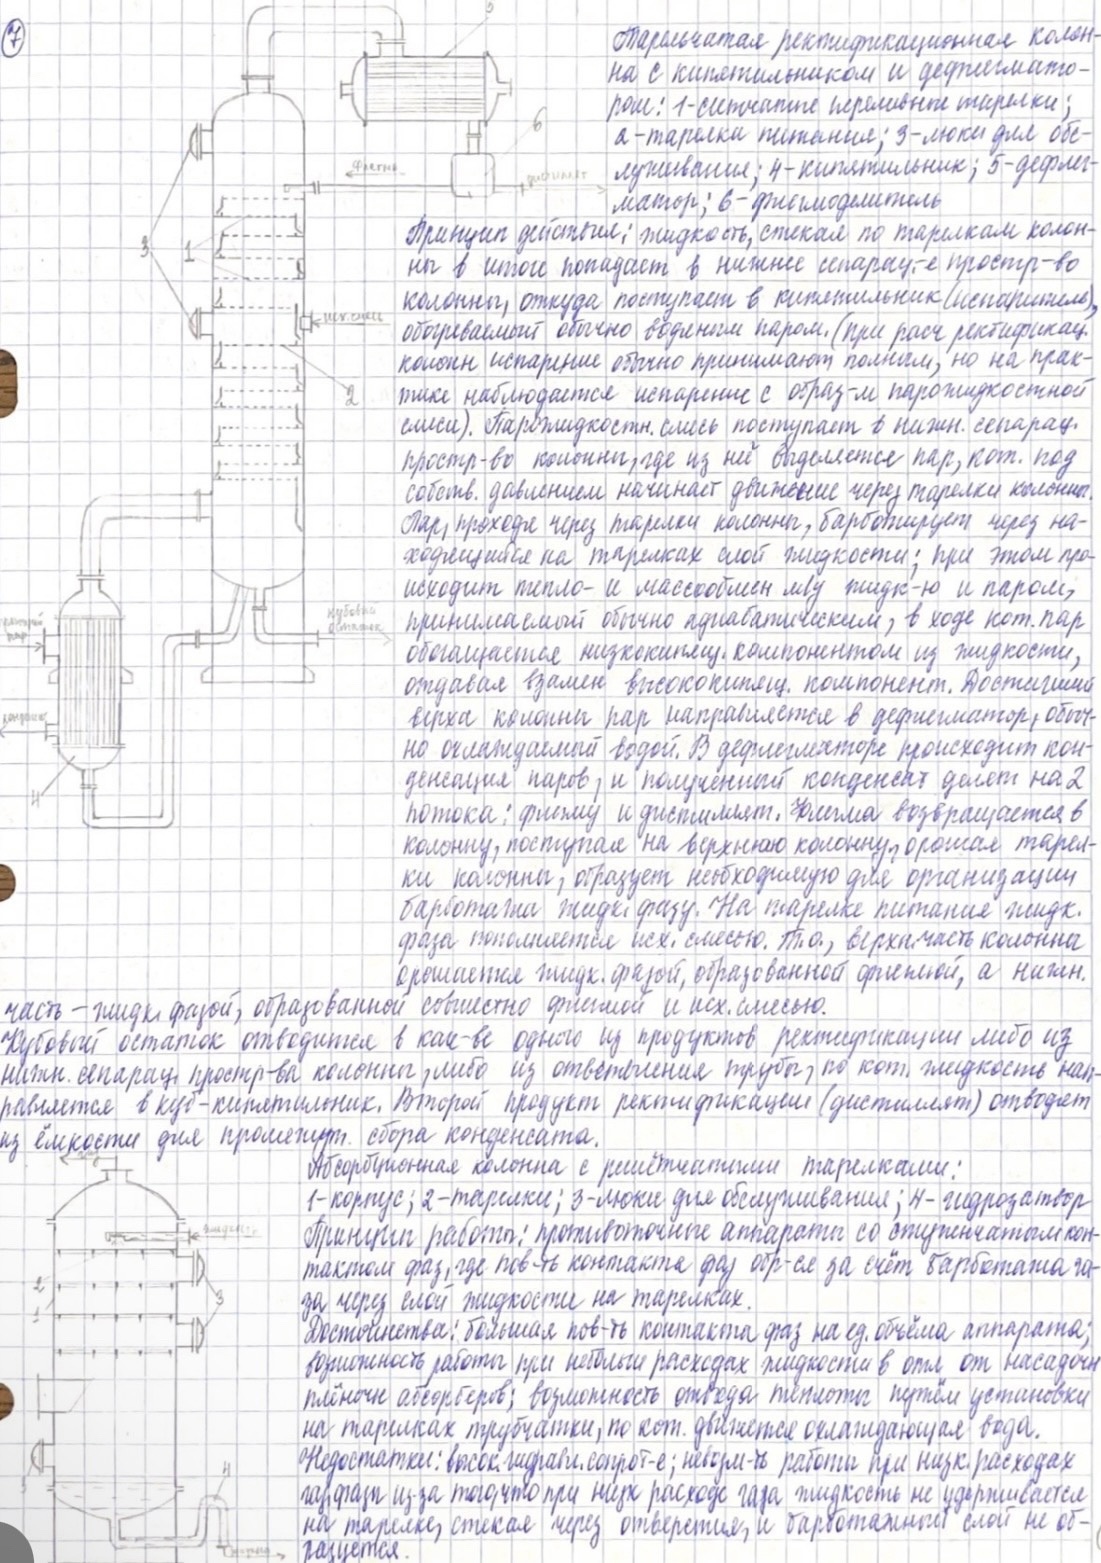 7
Тарельчатая ректификационная колон-
на с кипятильником и дефлегмато-
ром: 1-ситчатые переливные тарелки;
2-тарелка питания; 3-люки для обс-
луживания; 4-кипятильник; 5-дефлег-
матор; 6-флегмоделитель
5
6
флегма
дистиллят
3
1
исх. смесь
2
Принцип действия: жидкость, стекая по тарелкам колон-
ны в итоге попадает в нижнее сепарац-е простр-во
колонны, откуда поступает в кипятильник (испаритель),
обогреваемый обычно водяным паром. (при расч ректификац.
колонн испарение обычно принимают полным, но на прак-
тике наблюдается испарение с образ-м парожидкостной
смеси). Парожидкостн. смесь поступает в нижн. сепарац.
простр-во колонны, где из неё выделяется пар, кот. под
собств. давлением начинает движение через тарелки колонны.
Пар, проходя через тарелки колонны, барботирует через на-
ходящийся на тарелках слой жидкости; при этом про-
исходит тепло- и массообмен м/у жидк-ю и паром,
принимаемый обычно адиабатическим, в ходе кот. пар
обогащается низкокипящ. компонентом из жидкости,
отдавая взамен высококипящ. компонент. Достигший
верха колонны пар направляется в дефлегматор, обыч-
но охлаждаемый водой. В дефлегматоре происходит кон-
денсация паров, и полученный конденсат делят на 2
потока: флегму и дистиллят. Флегма возвращается в
колонну, поступая на верхнюю колонну, орошая тарел-
ки колонны, образует необходимую для организации
барботажа жидк. фазу. На тарелке питания жидк.
фаза пополняется исх. смесью. Т.о., верхн. часть колонны
орошается жидк. фазой, образованной флегмой, а нижн.
часть – жидк. фазой, образованной совместно флегмой и исх. смесью.
пар
кубовый
остаток
4
Кубовый остаток отводится в кач-ве одного из продуктов ректификации либо из
нижн. сепарац. простр-ва колонны, либо из ответвления трубы, по кот. жидкость нап-
равляется в куб-кипятильник. Второй продукт ректификации (дистиллят) отводят
из ёмкости для промежут. сбора конденсата.
Абсорбционная колонна с решётчатыми тарелками:
1-корпус; 2-тарелки; 3-люки для обслуживания; 4-гидрозатвор
Принцип работы: противоточные аппараты со ступенчатым кон-
тактом фаз, где пов-ть контакта фаз обр-ся за счёт барботажа га-
за через слой жидкости на тарелках.
Достоинства: большая пов-ть контакта фаз на ед. объёма аппарата;
возможность работы при небольш расходах жидкости в отл от насадочн
плёночн абсорберов; возможность отвода теплоты путём установки
на тарелках трубчатки, по кот. движется охлаждающая вода.
Недостатки: высок. гидравл. сопрот-е; невозм-ть работы при низк. расходах
газ фазы из-за того, что при низк расходе газа жидкость не удерживается
на тарелке, стекая через отверстия, и барботажный слой не об-
разуется.
жидкость
2
1
3
4